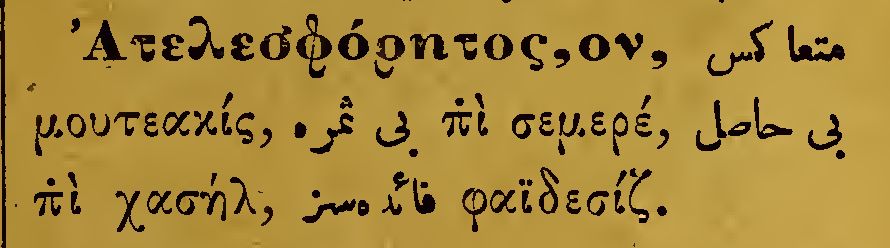 Ἀτελεσφόρητος,ον, متعاكس
μουτεακίς, بى ثمره π̇ὶ σεμερέ, بى حاصل
π̇ὶ χασήλ, فائدەسز φαϊδεσίζ.